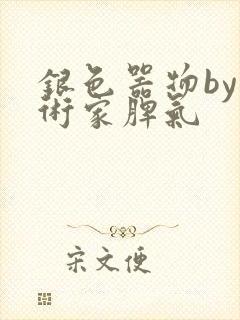 銀色器物by
術家脾氣
宋文便